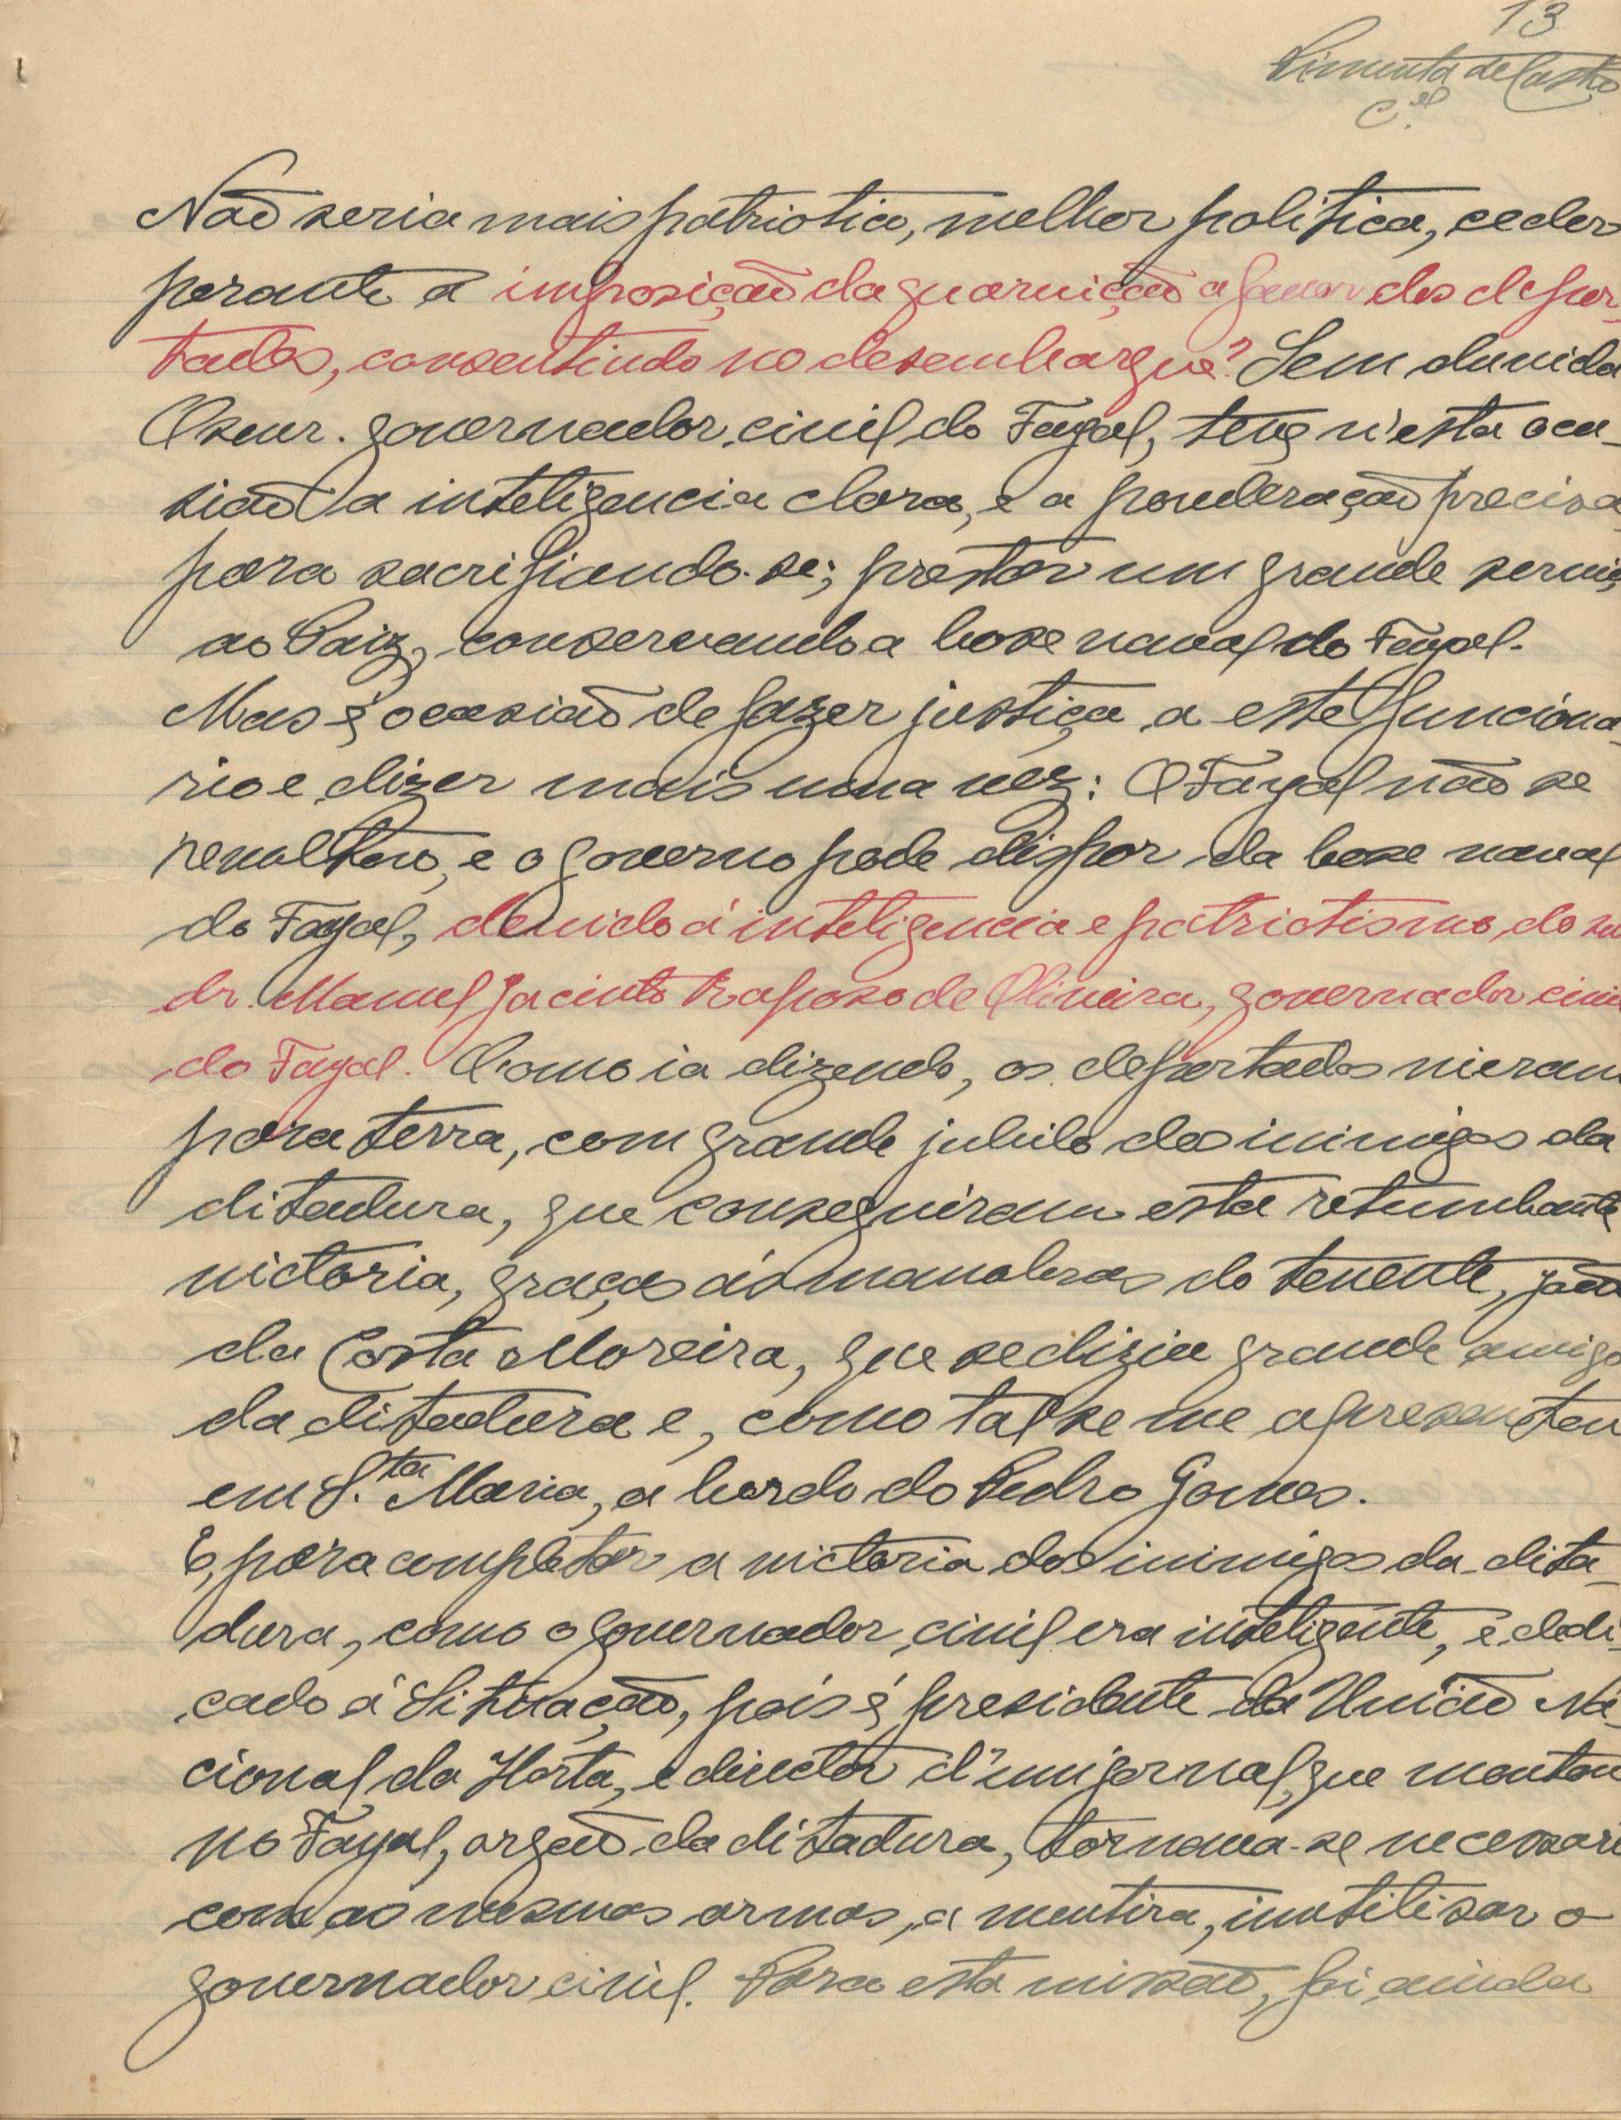 13
Pimenta de Castro
C.el
Não seria mais patriotico, melhor politica, ceder
perante a imposição da guarnição a favor dos depor-
tados, consentindo no desembarque? Sem duvida
O snr. governador civil do Fayal, teve n'esta oca-
sião a inteligencia clara, e a ponderação precisa
para sacrifiando-se; prestar um grande serviç
ao Paiz, conservando a base naval do Fayal.
Mas é ocasião de fazer justiça a este funciona-
rio e dizer mais uma vez: O Fayal não se
revoltou, e o governo pode dispor da base naval
do Fayal, devido á inteligencia e patriotismo, do sn
dr. Manuel Jacinto Raposo de Oliveira, governador civi
do Fayal. Como ia dizendo, os deportados vieram
para terra, com grande jubilo dos inimigos da
ditadura, que conseguiram esta retumbante
victoria, graças ás manobras do tenente, João
da Costa Moreira, que se dizia grande amigo
da ditadura e, como tal se me apresentou
em S.ta Maria, a bordo do Pedro Gomes.
E, para completar a victoria dos inimigos da dita-
dura, como o governador civil era inteligente, e dedi-
cado á Situação, pois é presidente da União Na-
cional da Horta, e director d'um jornal, que montou
no Fayal, orgão da ditadura, tornava-se necessari
com as mesmas armas, a mentira, inutilisar o
governador civil. Para esta missão, foi ainda